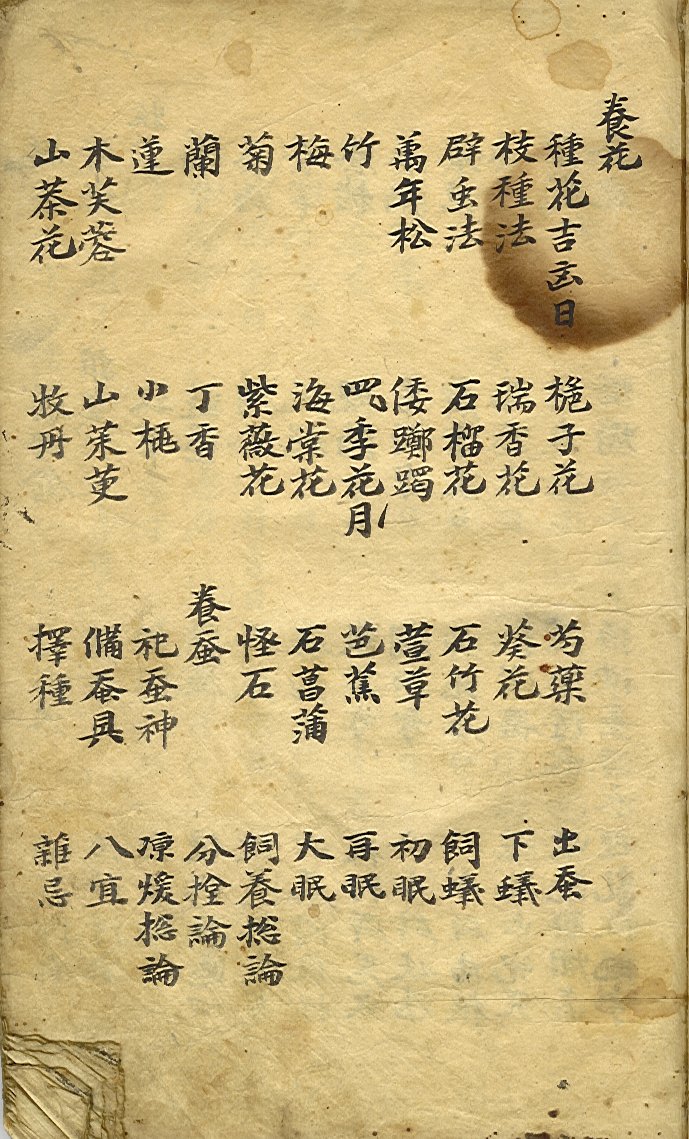 養花
種花吉㐫日
枝種法
辟虫法
萬年松
竹
梅
菊
蘭
蓮
木芙蓉
山茶花
桅子花
瑞香花
石榴花
倭躑躅
四季花月
海棠花
紫薇花
丁香
小桃
山茱萸
牧丹
芍藥
葵花
石竹花
萱草
芭蕉
石菖蒲
怪石
養蚕
祀蚕神
備蚕具
擇種
出蚕
下蟻
飼蟻
初眠
再眠
大眠
飼養捴論
分拴論
凉煖捴論
八宜
雜忌